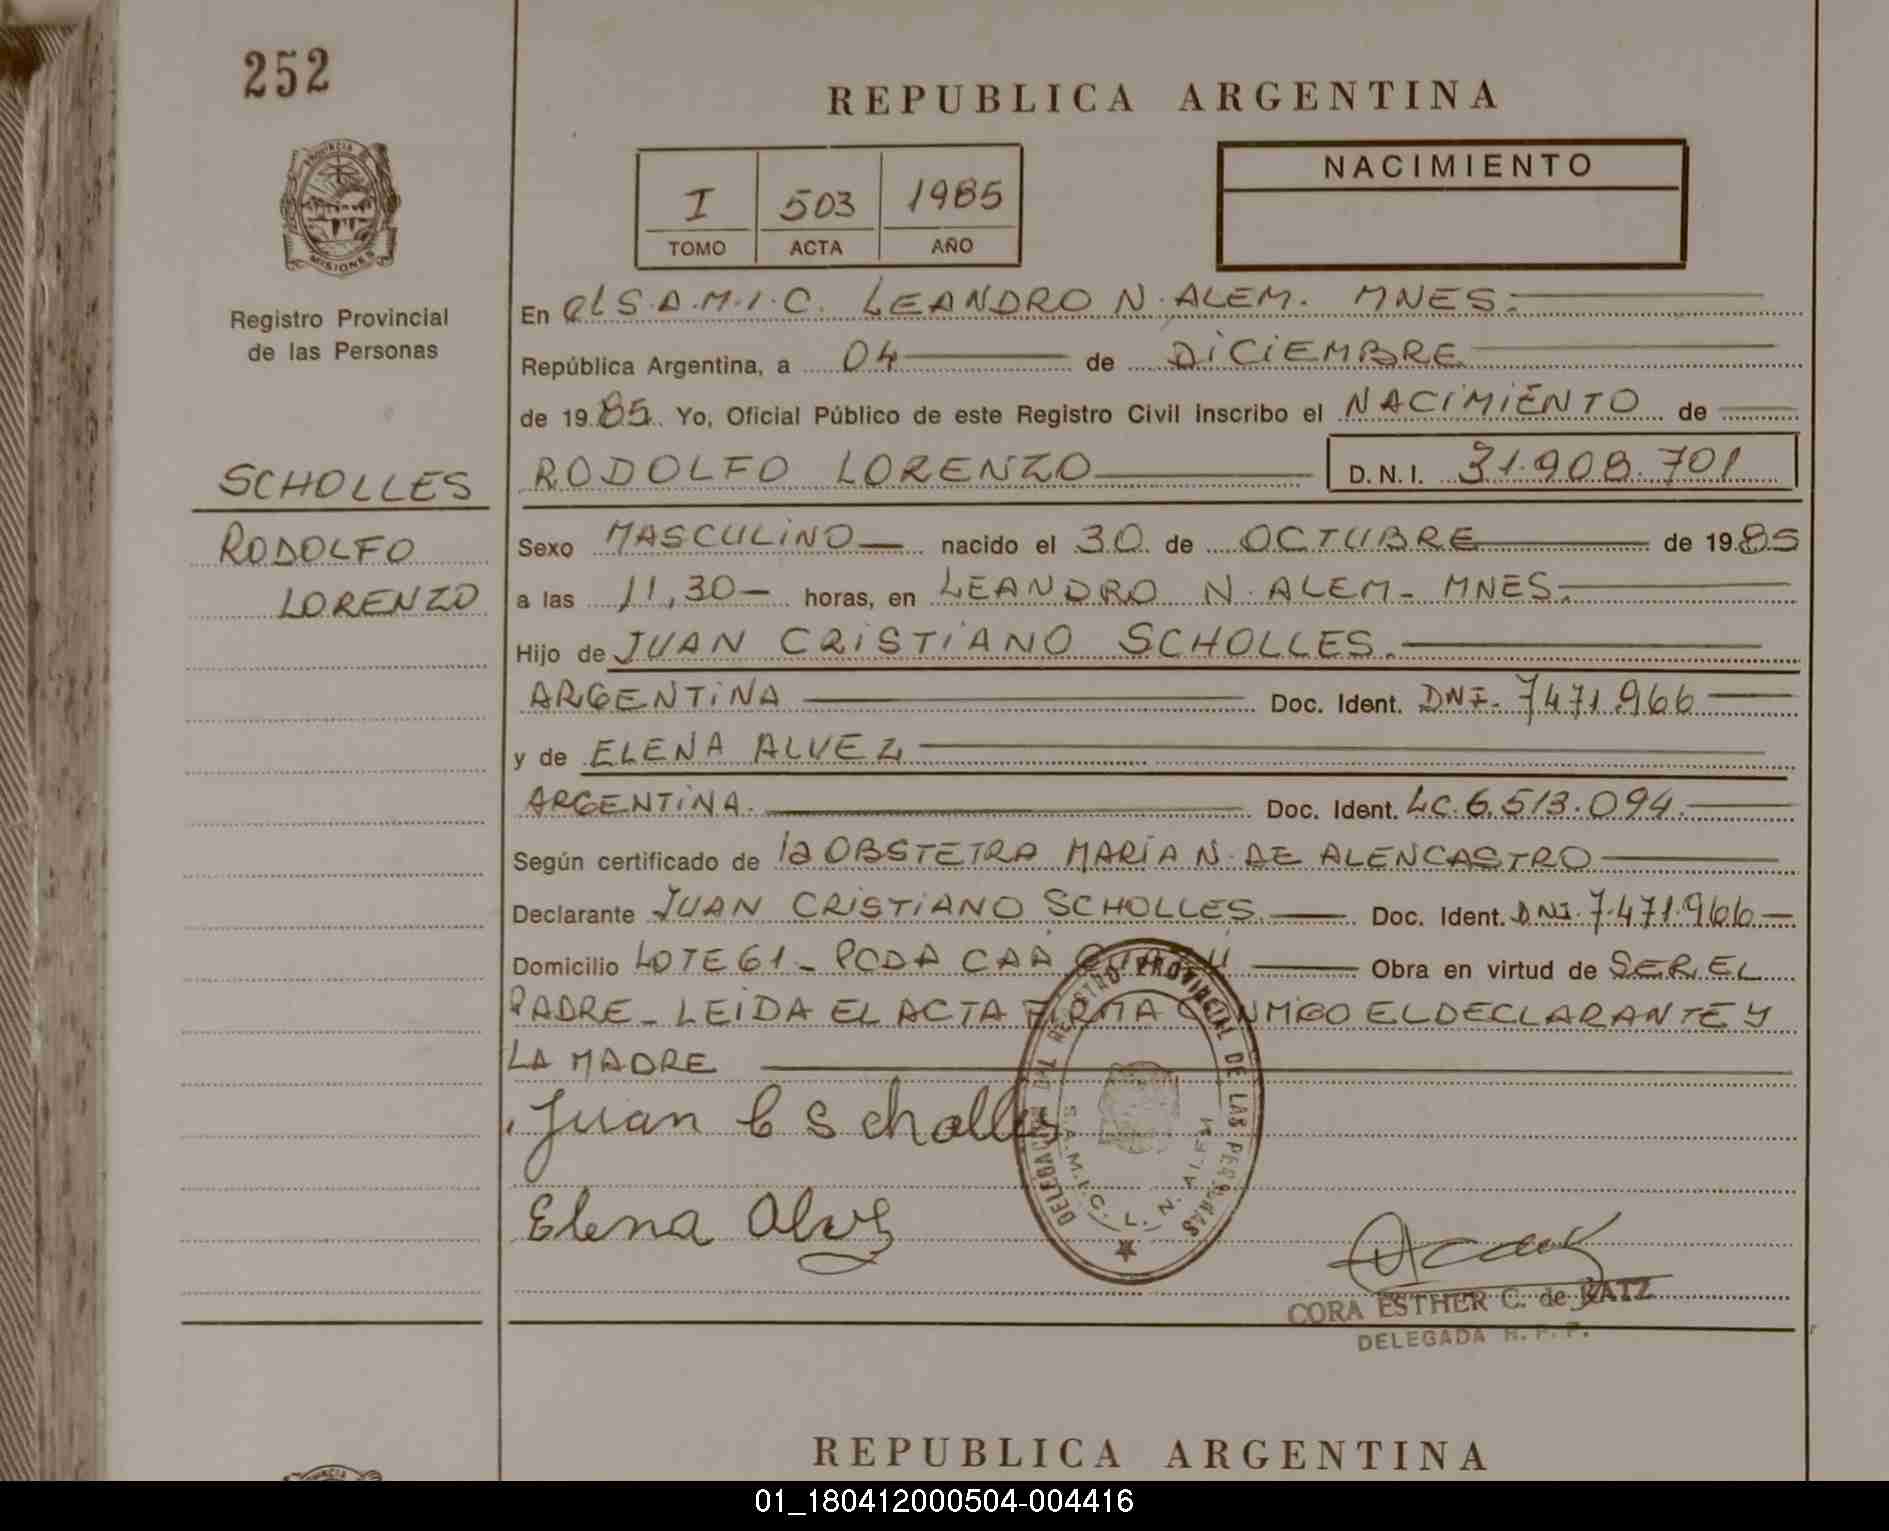 252
REPUBLICA ARGENTINA
PROVINCIA
MISIONES
Registro Provincial
de las Personas
I 503 1985
TOMO ACTA AÑO
NACIMIENTO
En el S.A.M.I.C. LEANDRO N. ALEM. MNES.
República Argentina, a 04 de DICIEMBRE
de 1985. Yo, Oficial Público de este Registro Civil inscribo el NACIMIENTO de
SCHOLLES
RODOLFO
LORENZO
RODOLFO LORENZO D.N.I. 31.908.701
Sexo MASCULINO nacido el 30 de OCTUBRE de 1985
a las 11,30 horas, en LEANDRO N. ALEM - MNES.
Hijo de JUAN CRISTIANO SCHOLLES.
ARGENTINA Doc. Ident. DNI. 7471.966
y de ELENA ALVEZ
ARGENTINA. Doc. Ident. LC. 6.513.094.
Según certificado de la OBSTETRA MARIA N. DE ALENCASTRO
Declarante JUAN CRISTIANO SCHOLLES Doc. Ident. DNI. 7.471.966
Domicilio LOTE 61 - PCDA CAA GUAZU Obra en virtud de SER EL
PADRE - LEIDA EL ACTA FIRMA CONMIGO EL DECLARANTE Y
LA MADRE
Juan C Scholles
Elena Alvez
DELEGACION DEL REGISTRO PROVINCIAL DE LAS PERSONAS
S.A.M.I.C. L. N. ALEM
CORA ESTHER C. de RATZ
DELEGADA R. P. P.
REPUBLICA ARGENTINA
01_180412000504-004416